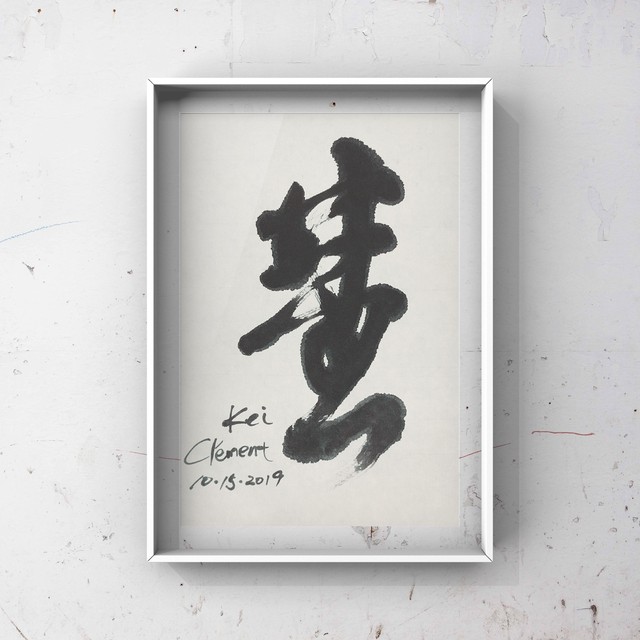 慧
Kei
Clement
10.15.2019